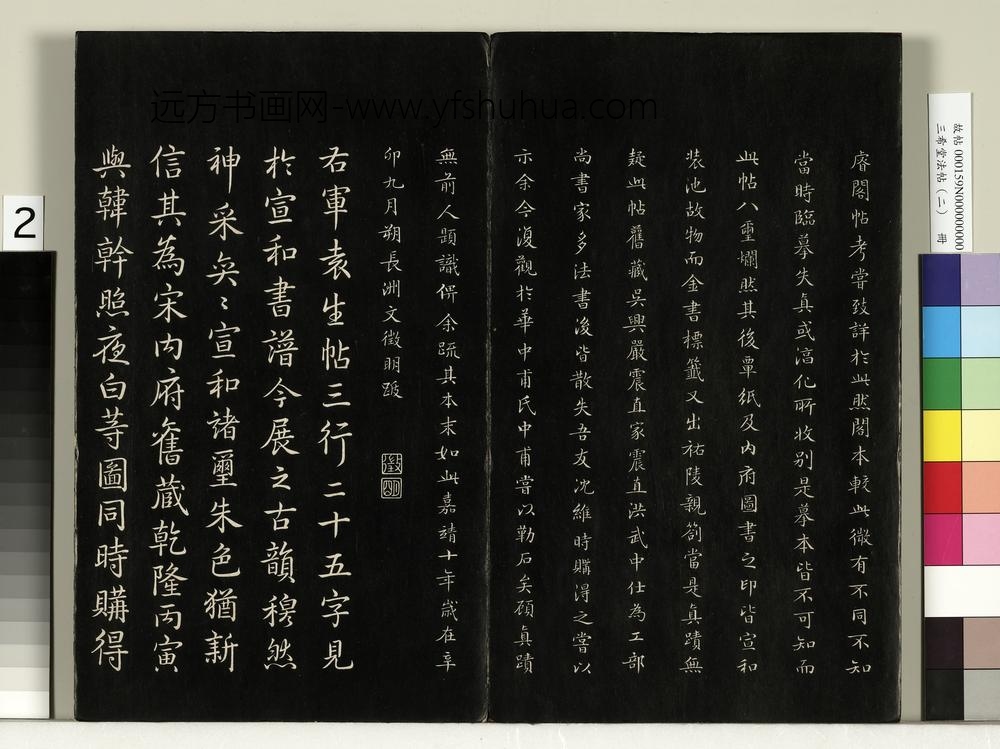 睿閣帖考嘗致詳於此然閣本較此微有不同不知
當時臨摹失真或淳化所收别是摹本皆不可知而
此帖八璽爛然其後覃紙及内府圖書之印皆宣和
裝池故物而金書標籤又出祐陵親劄當是真蹟無
疑此帖舊藏吳興嚴震直家震直洪武中仕為工部
尚書家多法書後皆散失吾友沈維時購得之嘗以
示余今復觀於華中甫氏中甫嘗以勒石矣顧真蹟
無前人題識俾余疏其本末如此嘉靖十年歲在辛
卯九月朔長洲文徵明跋
徵明
右軍袁生帖三行二十五字見
於宣和書譜今展之古韻穆然
神采奕〻宣和諸璽朱色猶新
信其為宋内府舊藏乾隆丙寅
與韓幹照夜白等圖同時購得
远方书画网-www.yfshuhua.com
故帖 000159N000000000
三希堂法帖（二） 冊
2